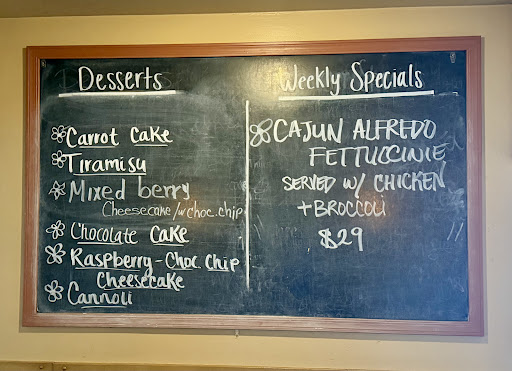 Desserts
Carrot Cake
Tiramisu
Mixed berry
Cheesecake/w choc. chip
Chocolate Cake
Raspberry-Choc. Chip
Cheesecake
Cannoli
Weekly Specials
CAJUN ALFREDO
FETTUCCINIE
SERVED W/ CHICKEN
+BROCCOLI
$29